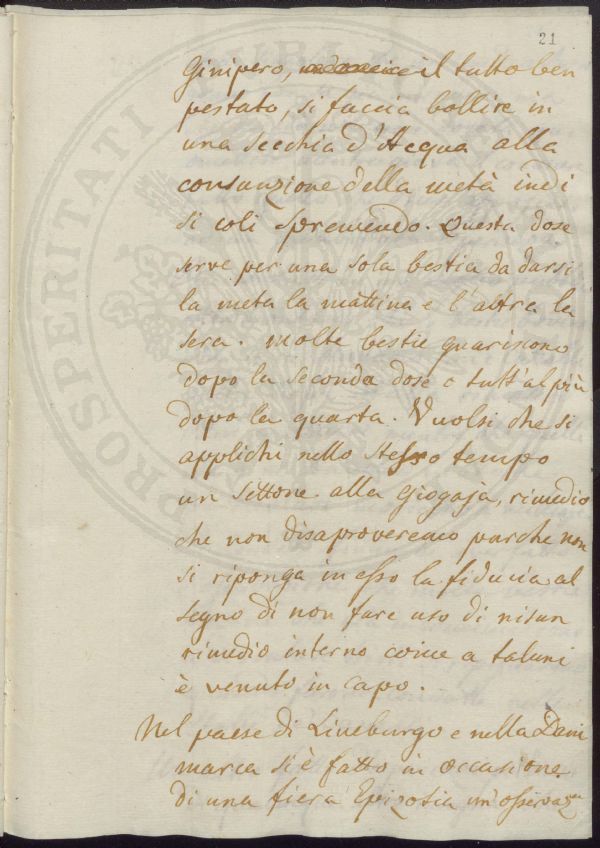 21
Ginipero, il tutto ben
pestato, si faccia bollire in
una secchia d'Acqua alla
consunzione della metà indi
si coli spremendo. Questa dose
serve per una sola bestia da darsi
la metà la mattina e l'altra la
sera. molte bestie guariscono
dopo la seconda dose o tutt'al più
dopo la quarta. Vuolsi che si
applichi nello stesso tempo
un Settone alla Giogaja, rimedio
che non disaproveremo purche non
si riponga in esso la fiducia al
segno di non fare uso di nisun
rimedio interno come a taluni
è venuto in capo.
Nel paese di Luneburgo e nella Dani
marca si è fatto in occasione
di una fiera Epizotia un'osservaz.
PROSPERITATI